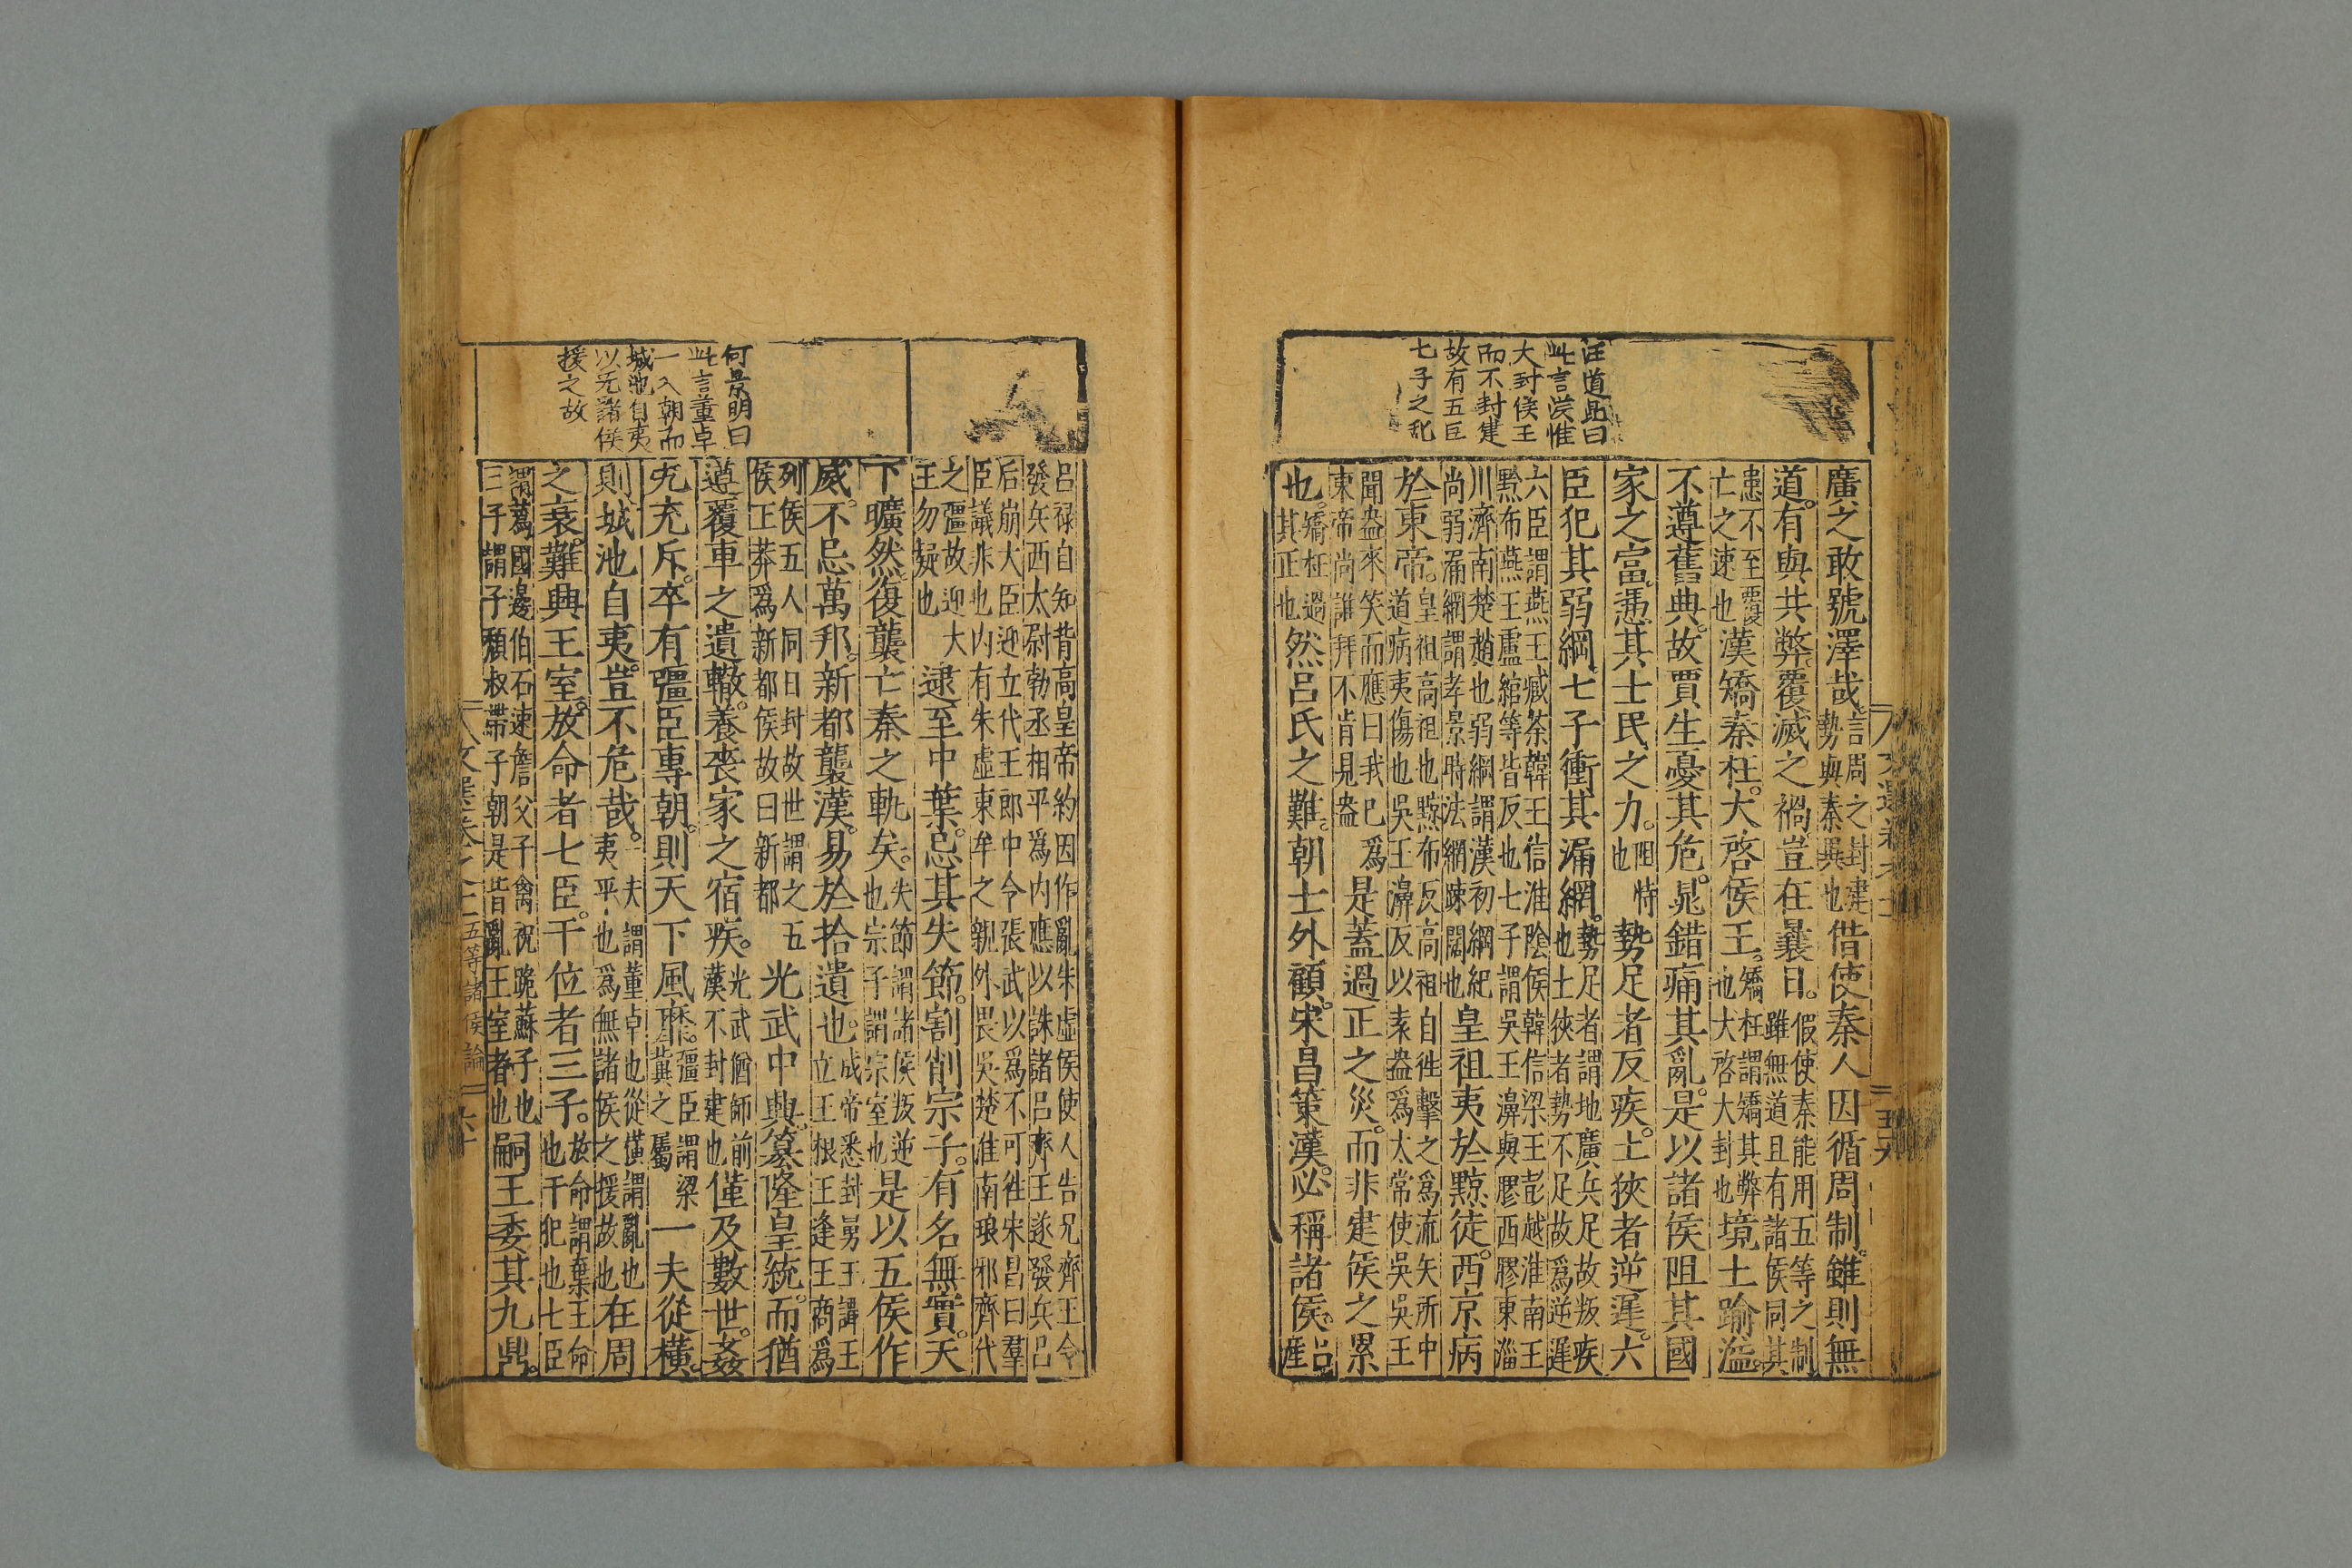 汪道昆曰
此言漢惟
大封侯王
而不封建
故有五臣
七子之乱
廣之敢號澤哉言周之封建勢與秦異也借使秦人因循周制雖則無
道。有與共弊。覆滅之禍。豈在曩日。假使秦能用五等之制雖無道且有諸侯同其
患不至覆亡之速也漢矯秦枉。大啓侯王。矯枉謂矯其弊也大啓大封也境土踰溢。
不遵舊典。故賈生憂其危。晁錯痛其亂。是以諸侯阻其國
家之富。憑其士民之力。阻恃也勢足者反疾。土狹者逆遲。六
臣犯其弱綱。七子衝其漏網。勢足者謂地廣兵足故叛疾也土狹者勢不足故爲逆遲
六臣謂燕王臧荼韓王信淮陰侯韓信梁王彭越淮南王黥布燕王盧綰等皆反也七子謂吳王濞與膠西膠東淄
川濟南楚趙也弱綱謂漢初綱紀尚弱漏網謂孝景時法網踈闊也皇祖夷於黥徒。西京病
於東帝。皇祖高祖也黥布反高祖自徃擊之爲流矢所中道病夷傷也吳王濞反以袁盎爲太常使吳吳王
聞盎來笑而應曰我已爲東帝尚誰拜不肯見盎是蓋過正之災。而非建侯之累
也。矯枉過其正也然呂氏之難。朝士外顧。宋昌策漢。必稱諸侯。呂産
呂禄自知背高皇帝約因作亂朱虛侯使人告兄齊王令發兵西太尉勃丞相平爲内應以誅諸呂齊王遂發兵呂
后崩大臣迎立代王郎中令張武以爲不可徃宋昌曰羣臣議非也内有朱虛東牟之親外畏吳楚淮南琅邪齊代
之彊故迎大王勿疑也逮至中葉。忌其失節。割削宗子。有名無實。天
下曠然。復襲亡秦之軌矣。失節謂諸侯叛逆也宗子謂宗室也是以五侯作
威。不忌萬邦。新都襲漢。易於拾遺也。成帝悉封舅王譚王立王根王逢王商爲
列侯五人同日封故世謂之五侯王莽爲新都侯故曰新都光武中興。纂隆皇統。而猶
遵覆車之遺轍。養喪家之宿疾。光武猶師前漢不封建也僅及數世。姦
宄充斥。卒有彊臣專朝。則天下風靡。彊臣謂梁冀之屬一夫從横。
則城池自夷。豈不危哉。一夫謂董卓也從横謂亂也夷平也爲無諸侯之援故也在周
之衰。難興王室。放命者七臣。干位者三子。放命謂棄王命也干犯也七臣
謂蔿國邊伯石速詹父子禽祝跪蘇子也三子謂子頽叔帶子朝是皆亂王室者也嗣王委其九鼎。
何景明曰
此言董卓
一入朝而
城池自夷
以无諸侯
援之故
五等諸侯論